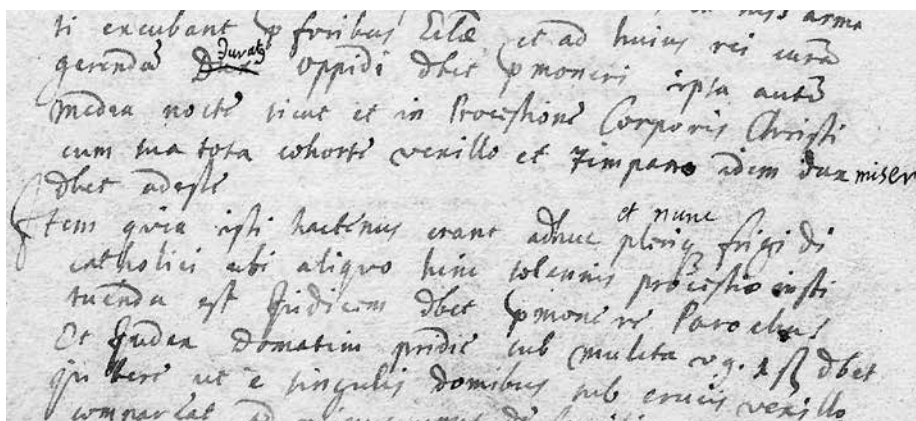 ti excubant p foribus Eclæ et ad huius rei curã
gerendã Jurat9 oppidi dbet pmoneri ipsa autẽ
media nocte sicut et in Processione Corporis Christi
cum sua tota cohorte vexillo et Timpano idem dux miser
dbet adesse
Item quia isti hactenus erant adhuc et nunc pleriq frigidi
catholici ubi aliquo hinc solennis processio insti
tuenda est Judicem dbet pmonere Parochus
Et Judex Domatim pridie sub mulcta vg. 1 ß dbet
jubere ut e singulis domibus sub crucis vexillo
compareat